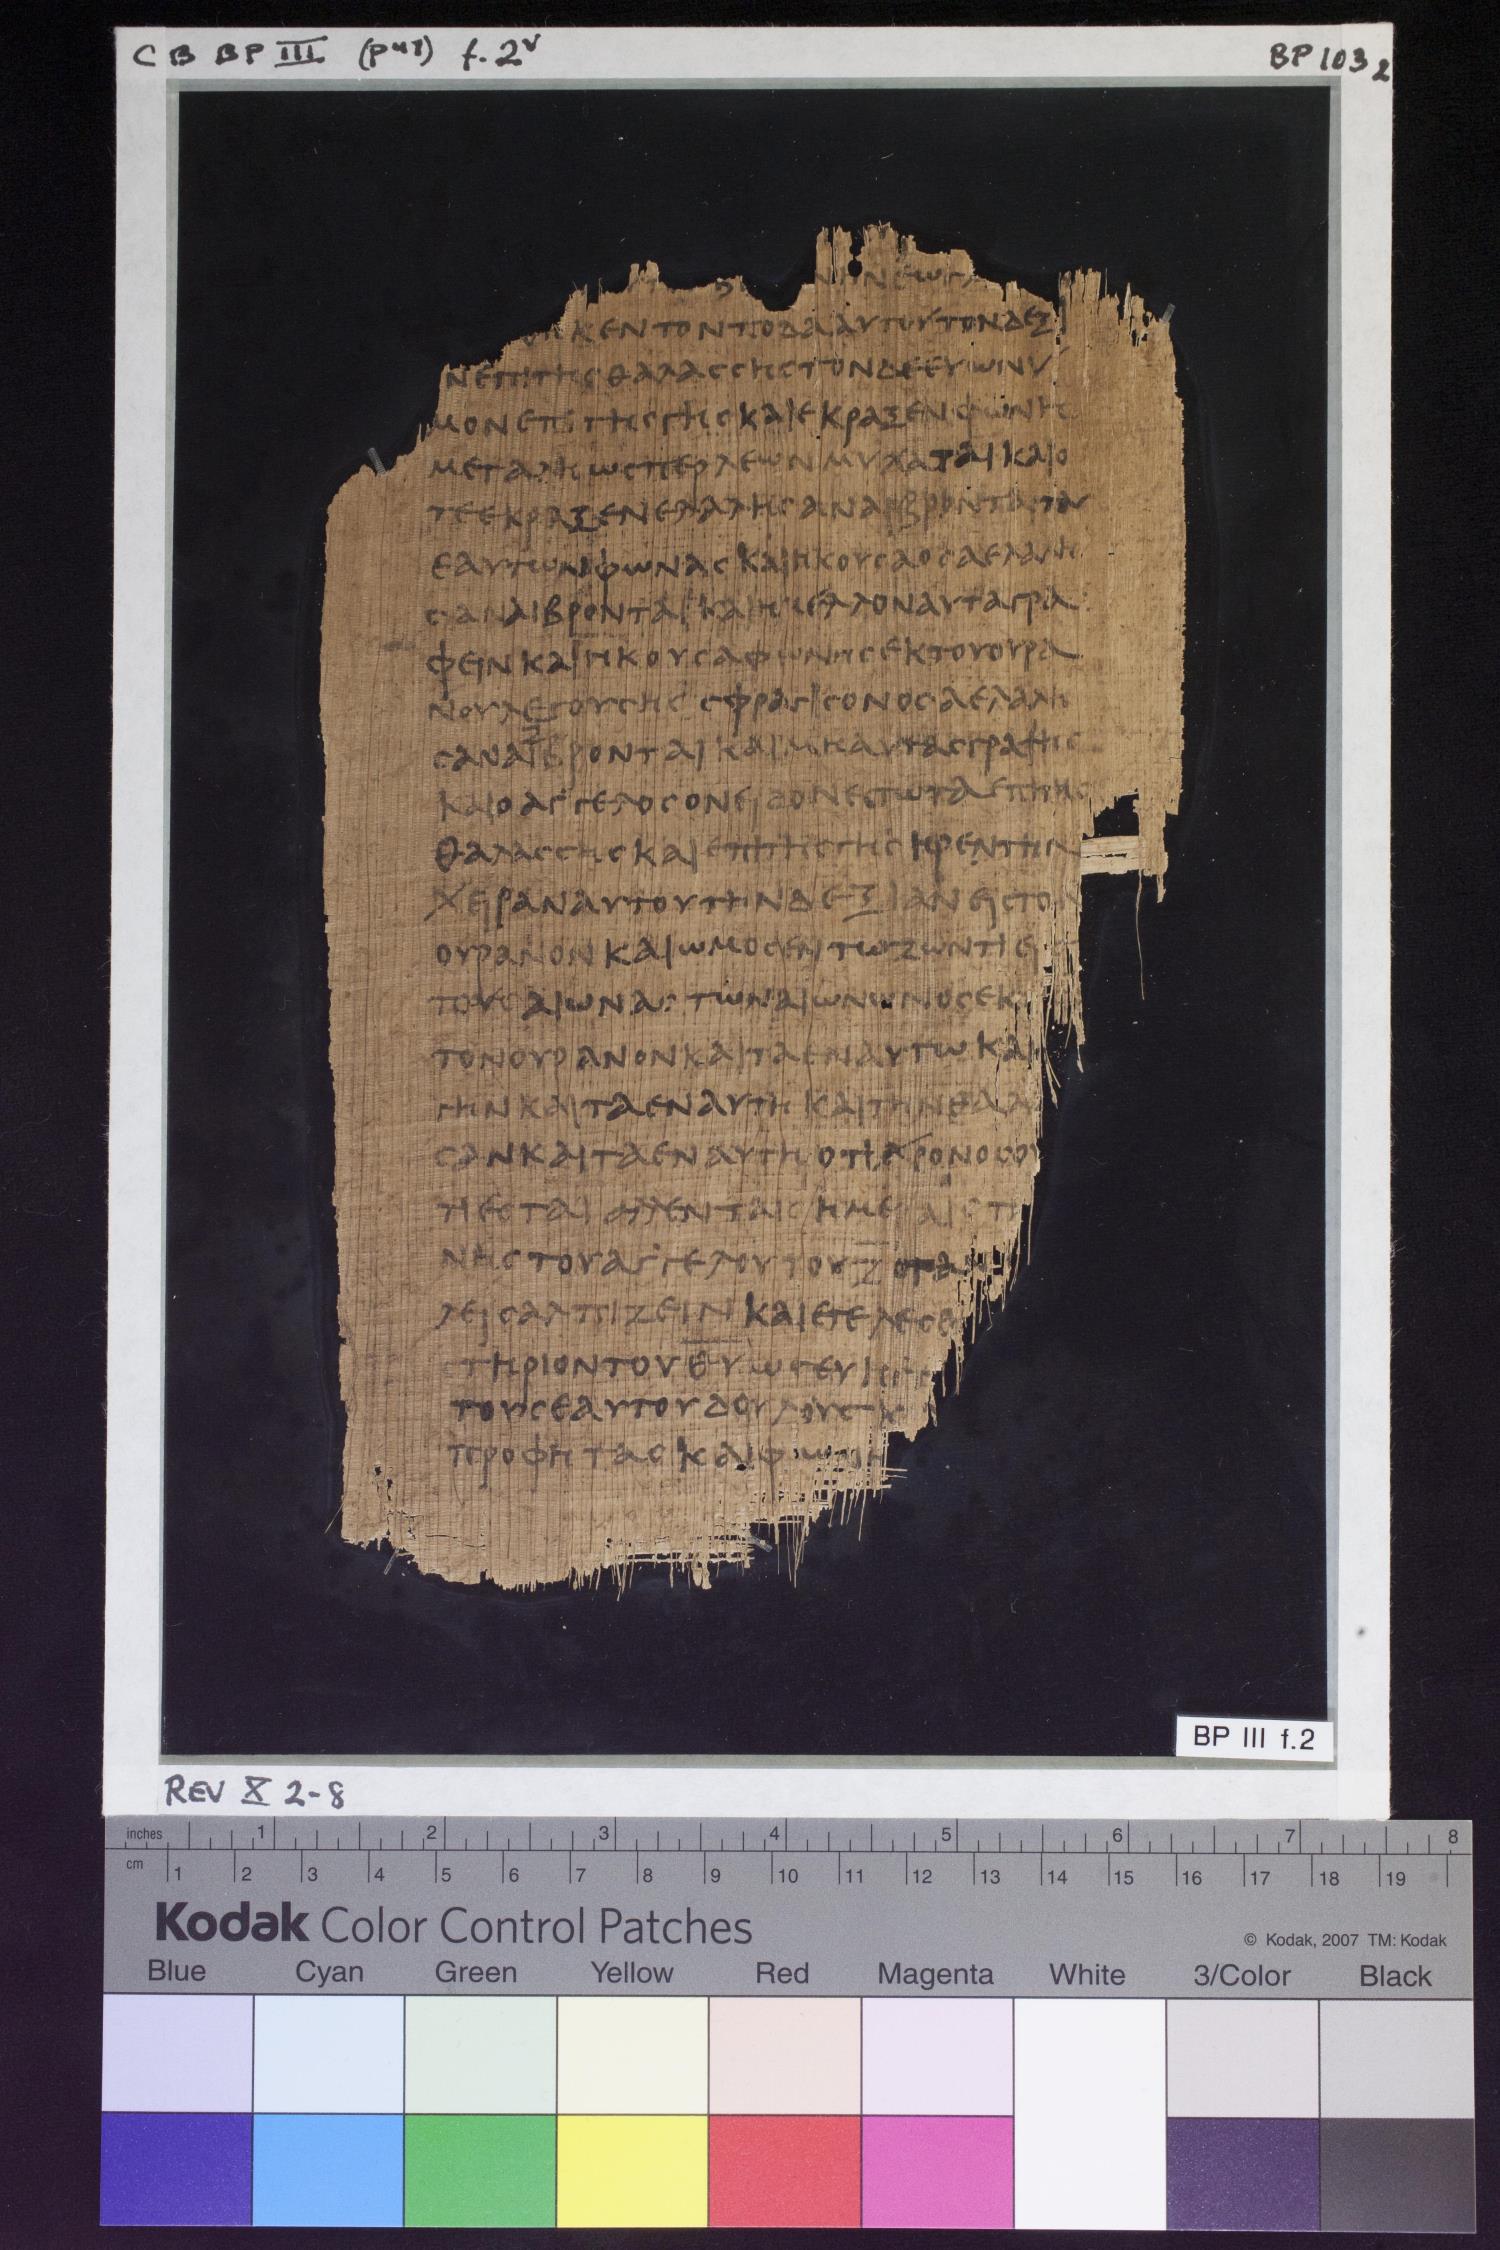 C B BP III (P47) f. 2v
BP 1032
ΗΝΕΩΓ
ΚΕΝΤΟΝΠΟΔΑΑΥΤΟΥΤΟΝΔΕΞΙ
ΝΕΠΙΤΗΣΘΑΛΑΣΣΗΣΤΟΝΔΕΕΥΩΝΥ
ΜΟΝΕΠΙΤΗΣΓΗΣΚΑΙΕΚΡΑΞΕΝΦΩΝΗ
ΜΕΓΑΛΗΩΣΠΕΡΛΕΩΝΜΥΚΑΤΑΙΚΑΙΟ
ΤΕΕΚΡΑΞΕΝΕΛΑΛΗΣΑΝΑΙΒΡΟΝΤΑΙΤΑΙ
ΕΑΥΤΩΝΦΩΝΑΣΚΑΙΗΚΟΥΣΑΟΣΑΕΛΑΛΗ
ΣΑΝΑΙΒΡΟΝΤΑΙΚΑΙΗΜΕΛΛΟΝΑΥΤΑΓΡΑ
ΦΕΙΝΚΑΙΗΚΟΥΣΑΦΩΝΗΣΕΚΤΟΥΟΥΡΑ
ΝΟΥΛΕΓΟΥΣΗΣΣΦΡΑΓΙΣΟΝΟΣΑΕΛΑΛΗ
ΣΑΝΑΙΖΒΡΟΝΤΑΙΚΑΙΜΗΑΥΤΑΣΓΡΑΨΗΣ
ΚΑΙΟΑΓΓΕΛΟΣΟΝΕΙΔΟΝΕΣΤΩΤΑΕΠΙΤΗΣ
ΘΑΛΑΣΣΗΣΚΑΙΕΠΙΤΗΣΓΗΣΗΡΕΝΤΗΝ
ΧΕΙΡΑΝΑΥΤΟΥΤΗΝΔΕΞΙΑΝΕΙΣΤΟΝ
ΟΥΡΑΝΟΝΚΑΙΩΜΟΣΕΝΤΩΖΩΝΤΙΕΙ
ΤΟΥΣΑΙΩΝΑΣΤΩΝΑΙΩΝΩΝΟΣΕΚ
ΤΟΝΟΥΡΑΝΟΝΚΑΙΤΑΕΝΑΥΤΩΚΑΙ
ΓΗΝΚΑΙΤΑΕΝΑΥΤΗΚΑΙΤΗΝΘΑΛΑ
ΣΑΝΚΑΙΤΑΕΝΑΥΤΗΟΤΙΧΡΟΝΟΣΟΥ
ΤΙΕΣΤΑΙΑΛΛΕΝΤΑΙΣΗΜΕΡΑΙΣΤΗ
ΝΗΣΤΟΥΑΓΓΕΛΟΥΤΟΥΖΟΤΑ
ΛΕΙΣΑΛΠΙΖΕΙΝΚΑΙΕΤΕΛΕΣΘ
ΣΤΗΡΙΟΝΤΟΥΘΥΩΣΕΥΗΓΓ
ΤΟΥΣΕΑΥΤΟΥΔΟΥΛΟΥΣΚ
ΠΡΟΦΗΤΑΣΚΑΙΦΩΝΗ
BP III f.2
REV X 2-8
inches 1 2 3 4 5 6 7 8
cm 1 2 3 4 5 6 7 8 9 10 11 12 13 14 15 16 17 18 19
Kodak Color Control Patches
© Kodak, 2007 TM: Kodak
Blue Cyan Green Yellow Red Magenta White 3/Color Black